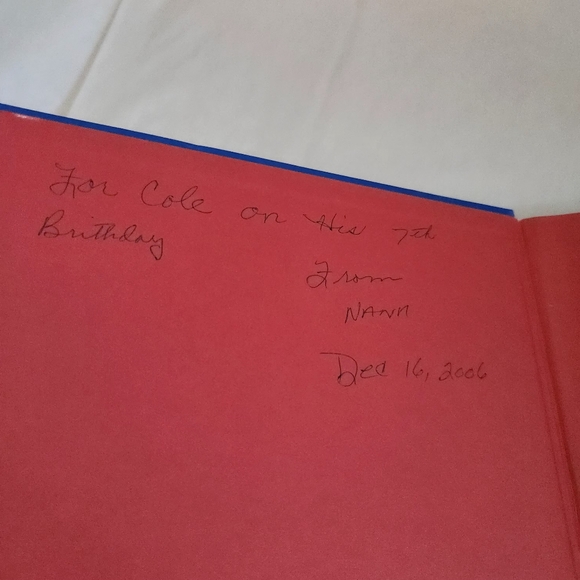 For Cole on His 7th
Brithday
From
NANA
Dec 16, 2006